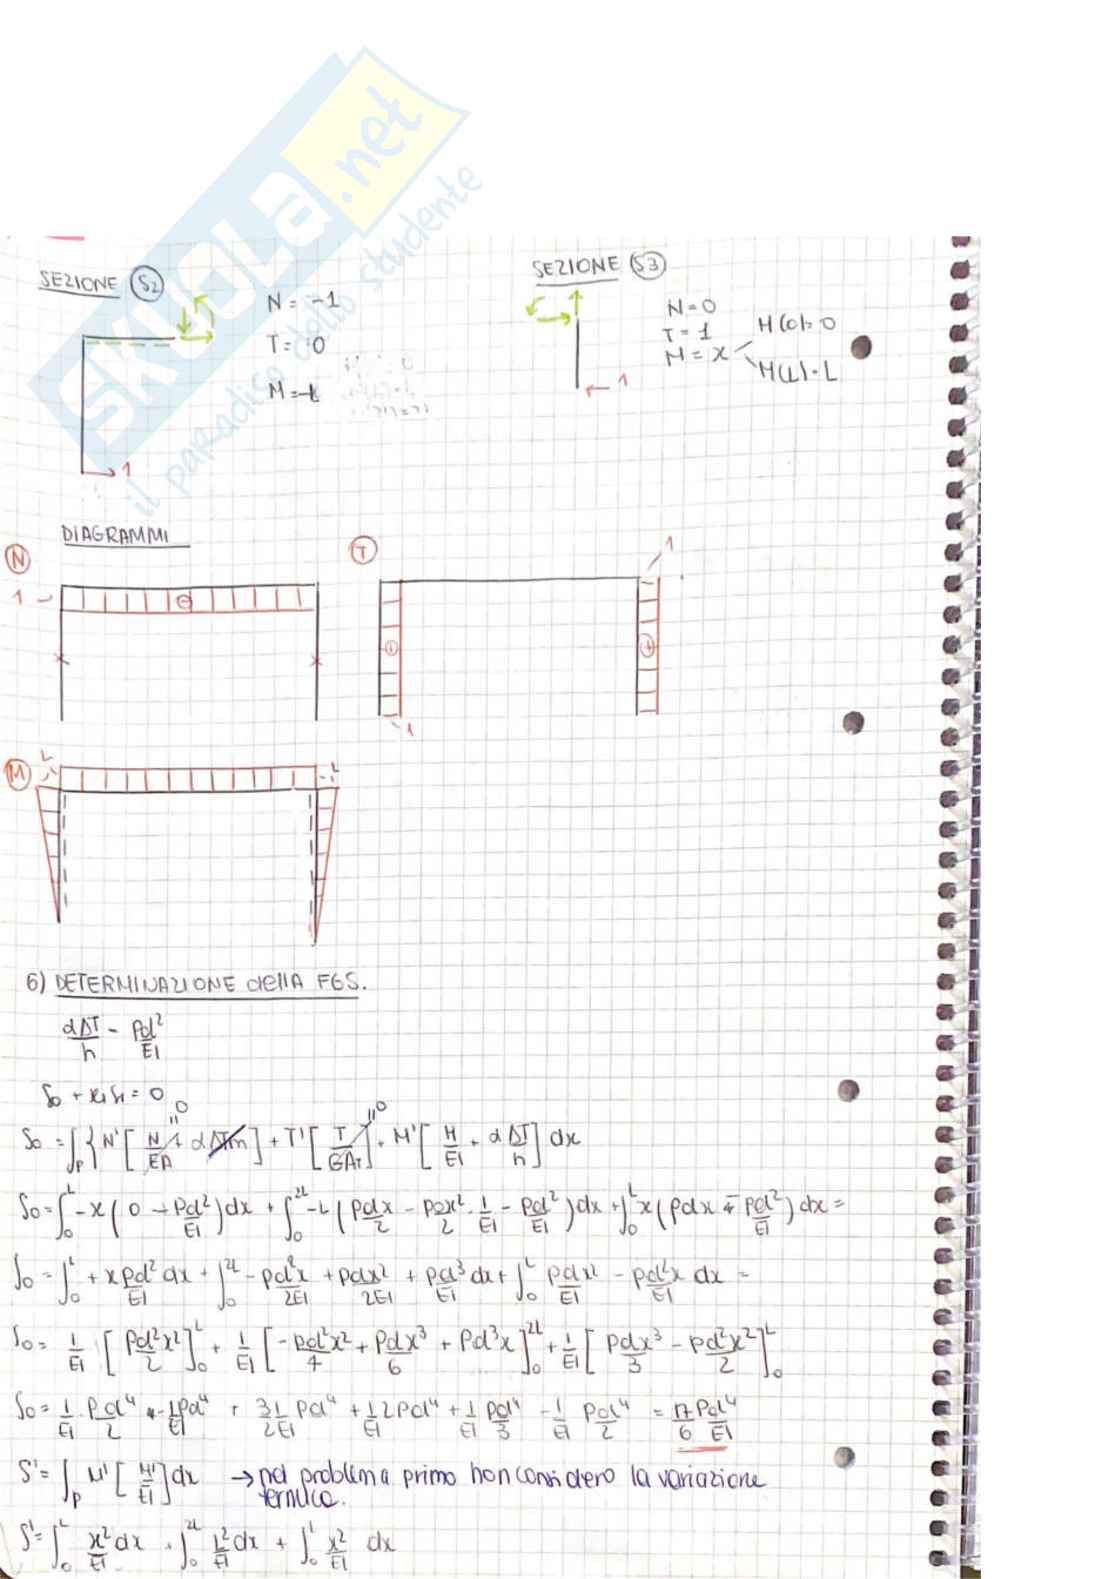 SKUOLA.net
il paradiso dello studente
SEZIONE S2
N = -1
T = 0
M = -L
1
SEZIONE S3
N = 0
T = 1
M = x
M(0) = 0
M(L) = L
1
DIAGRAMMI
N
1
T
1
1
M
L
L
6) DETERMINAZIONE della FGS.
αΔT/h = pd²/EI
S0 + x1S1 = 0
S0 = ∫P {N' [N/EA + αΔTm] + T' [T/GAT] + M' [M/EI + αΔT/h] dx
S0 = ∫0^L -x (0 - pd²/EI) dx + ∫0^2L -L (pdx/2 - pdx²/2 · 1/EI - pd²/EI) dx + ∫0^L x (pdx - pd²/EI) dx =
S0 = ∫0^L + x pd²/EI dx + ∫0^2L - pd²x/2EI + pdx²/2EI + pd³/EI dx + ∫0^L pdx²/EI - pd²x/EI dx =
S0 = 1/EI [pd²x²/2]0^L + 1/EI [-pd²x²/4 + pdx³/6 + pd³x]0^2L + 1/EI [pdx³/3 - pd²x²/2]0^L
S0 = 1/EI pd⁴/2 - 1/EI pd⁴ + 1/EI 2pd⁴ + 1/EI pd⁴/3 - 1/EI pd⁴/2 = 17/6 pd⁴/EI
S' = ∫P M' [M'/EI] dx → nel problema primo non considero la variazione
termica.
S' = ∫0^L x²/EI dx + ∫0^2L L²/EI dx + ∫0^L x²/EI dx